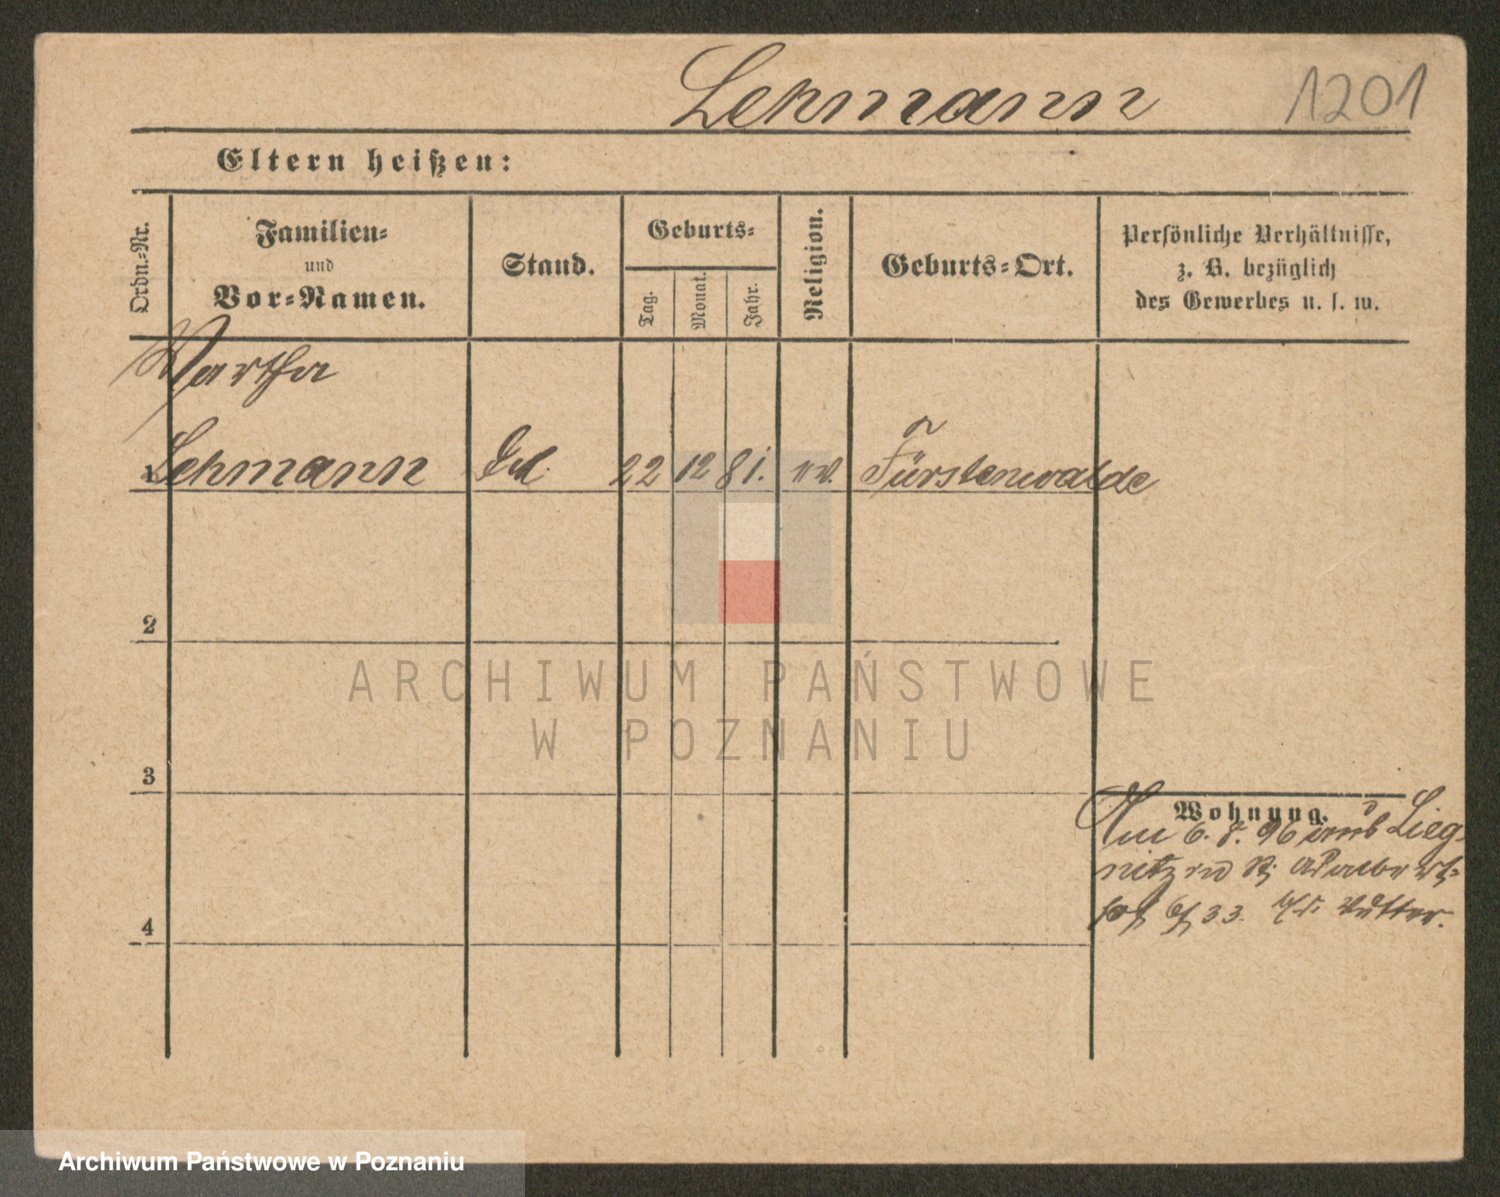 Lehmann 1201
Eltern heißen:
Ordn.-Nr.
Familien-
und
Vor-Namen.
Stand.
Geburts-
Tag.
Monat.
Jahr.
Religion.
Geburts-Ort.
Persönliche Verhältnisse,
z. B. bezüglich
des Gewerbes u. s. w.
Martha
1 Lehmann 22 12 81. ev. Fürstenwalde
2
3
4
Wohnung.
Am 6. 8. 96 aus Lieg-
nitz
33. Mutter.
ARCHIWUM PAŃSTWOWE
W POZNANIU
Archiwum Państwowe w Poznaniu